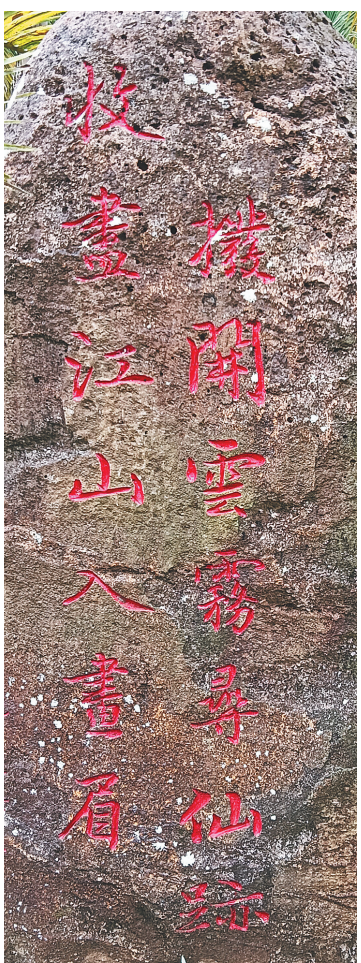 撥開雲霧尋仙跡
收盡江山入畫眉